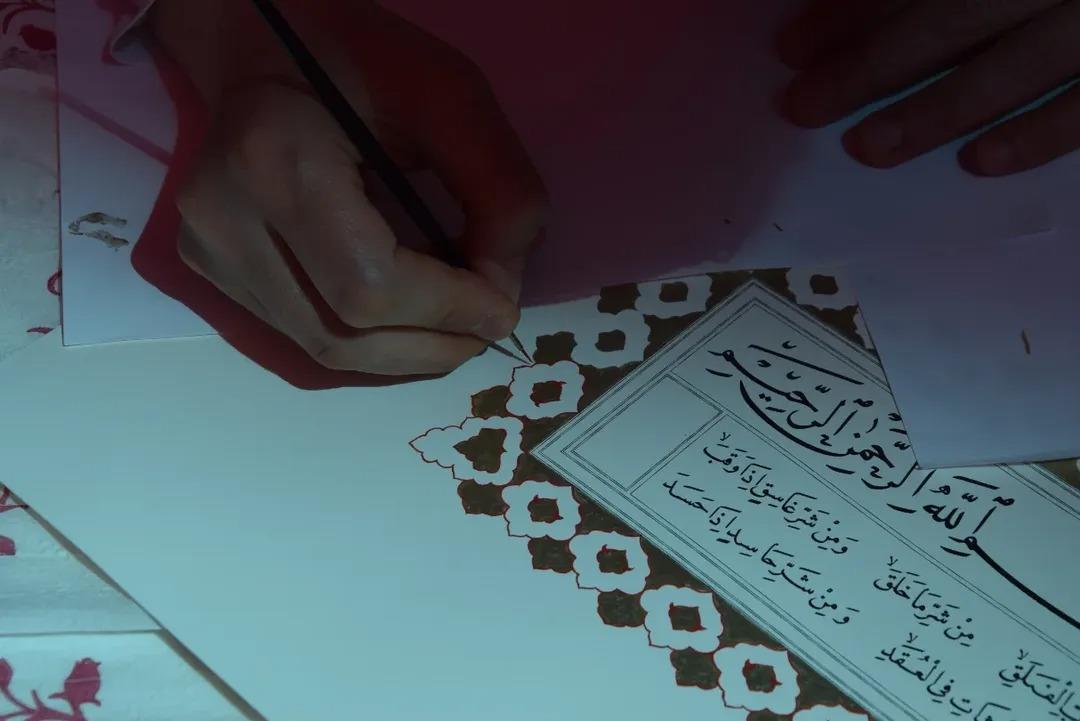 اللّٰهِ الرَّحْمٰنِ الرَّحِيمِ
الْفَلَقِ مِنْ شَرِّ مَا خَلَقَ وَمِنْ شَرِّ غَاسِقٍ اِذَا وَقَبَ
فِي الْعُقَدِ وَمِنْ شَرِّ حَاسِدٍ اِذَا حَسَدَ